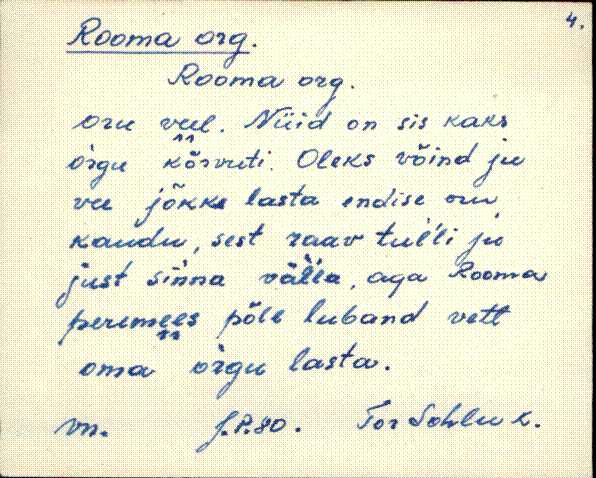 4.
Rooma org.
Rooma org.
oru veel. Nüid on sis kaks
õrgu kõrvuti. Oleks võind ju
vee jõkke lasta endise oru
kaudu, sest raav tulli ju
just sinna välla, aga Rooma
peremees põle luband vett
oma õrgu lasta.
vn. J.P.80. Tor Sohlu k.